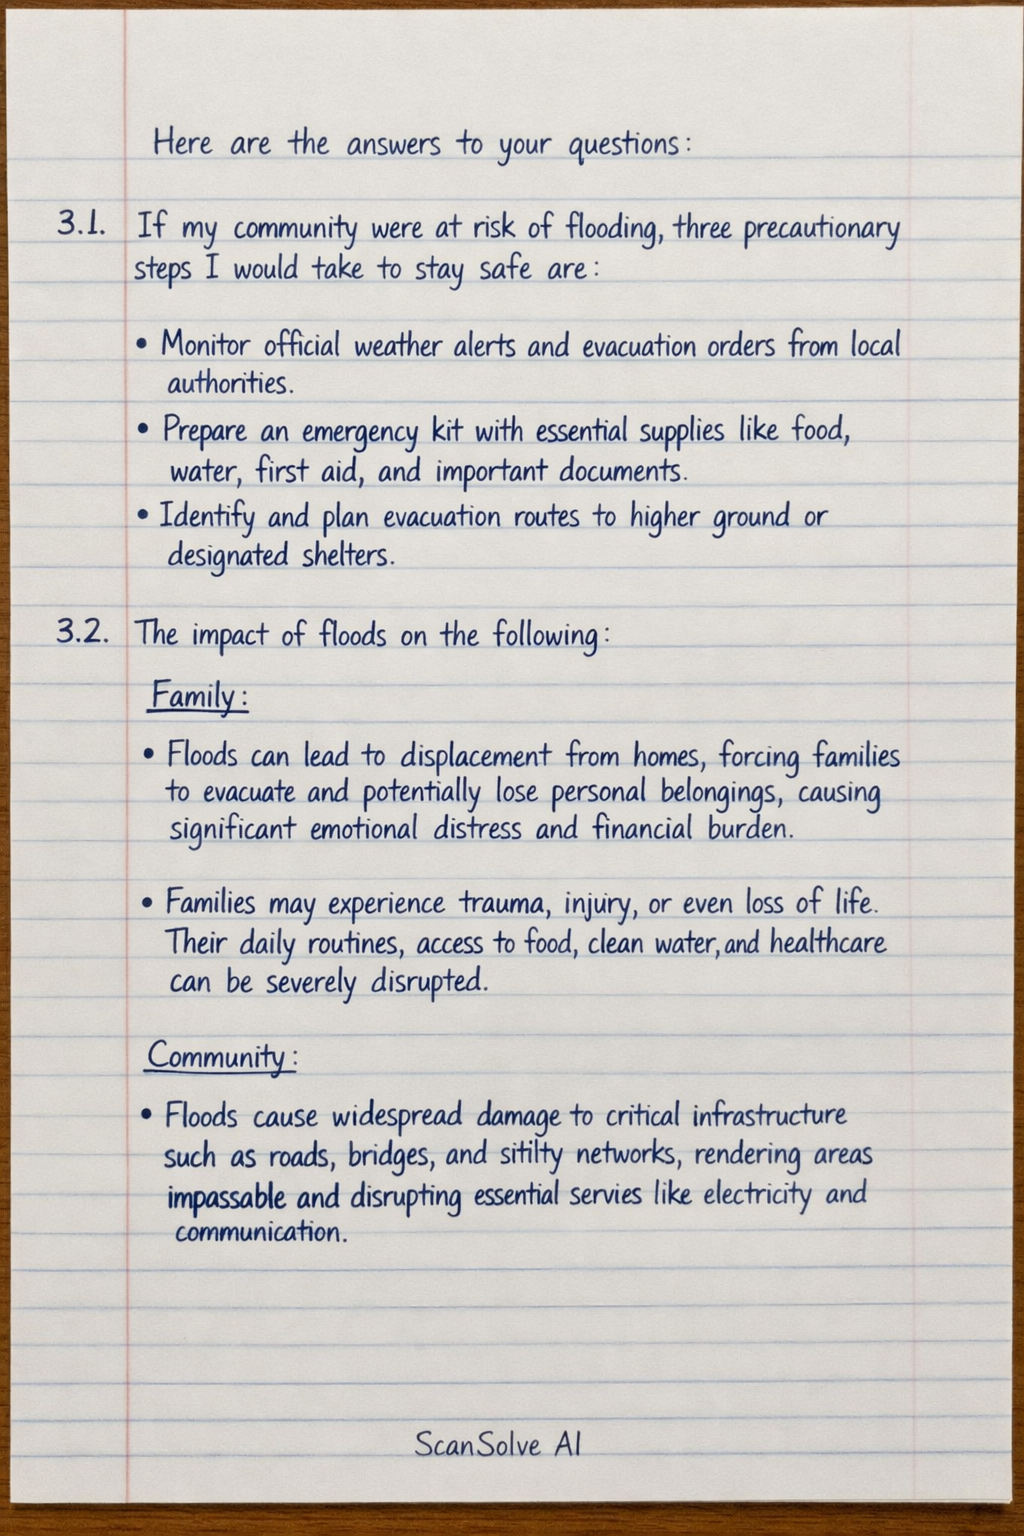 Here are the answers to your questions:
3.1. If my community were at risk of flooding, three precautionary
steps I would take to stay safe are:
• Monitor official weather alerts and evacuation orders from local
authorities.
• Prepare an emergency kit with essential supplies like food,
water, first aid, and important documents.
• Identify and plan evacuation routes to higher ground or
designated shelters.
3.2. The impact of floods on the following:
Family:
• Floods can lead to displacement from homes, forcing families
to evacuate and potentially lose personal belongings, causing
significant emotional distress and financial burden.
• Families may experience trauma, injury, or even loss of life.
Their daily routines, access to food, clean water, and healthcare
can be severely disrupted.
Community:
• Floods cause widespread damage to critical infrastructure
such as roads, bridges, and sitilty networks, rendering areas
impassable and disrupting essential servies like electricity and
communication.
ScanSolve AI